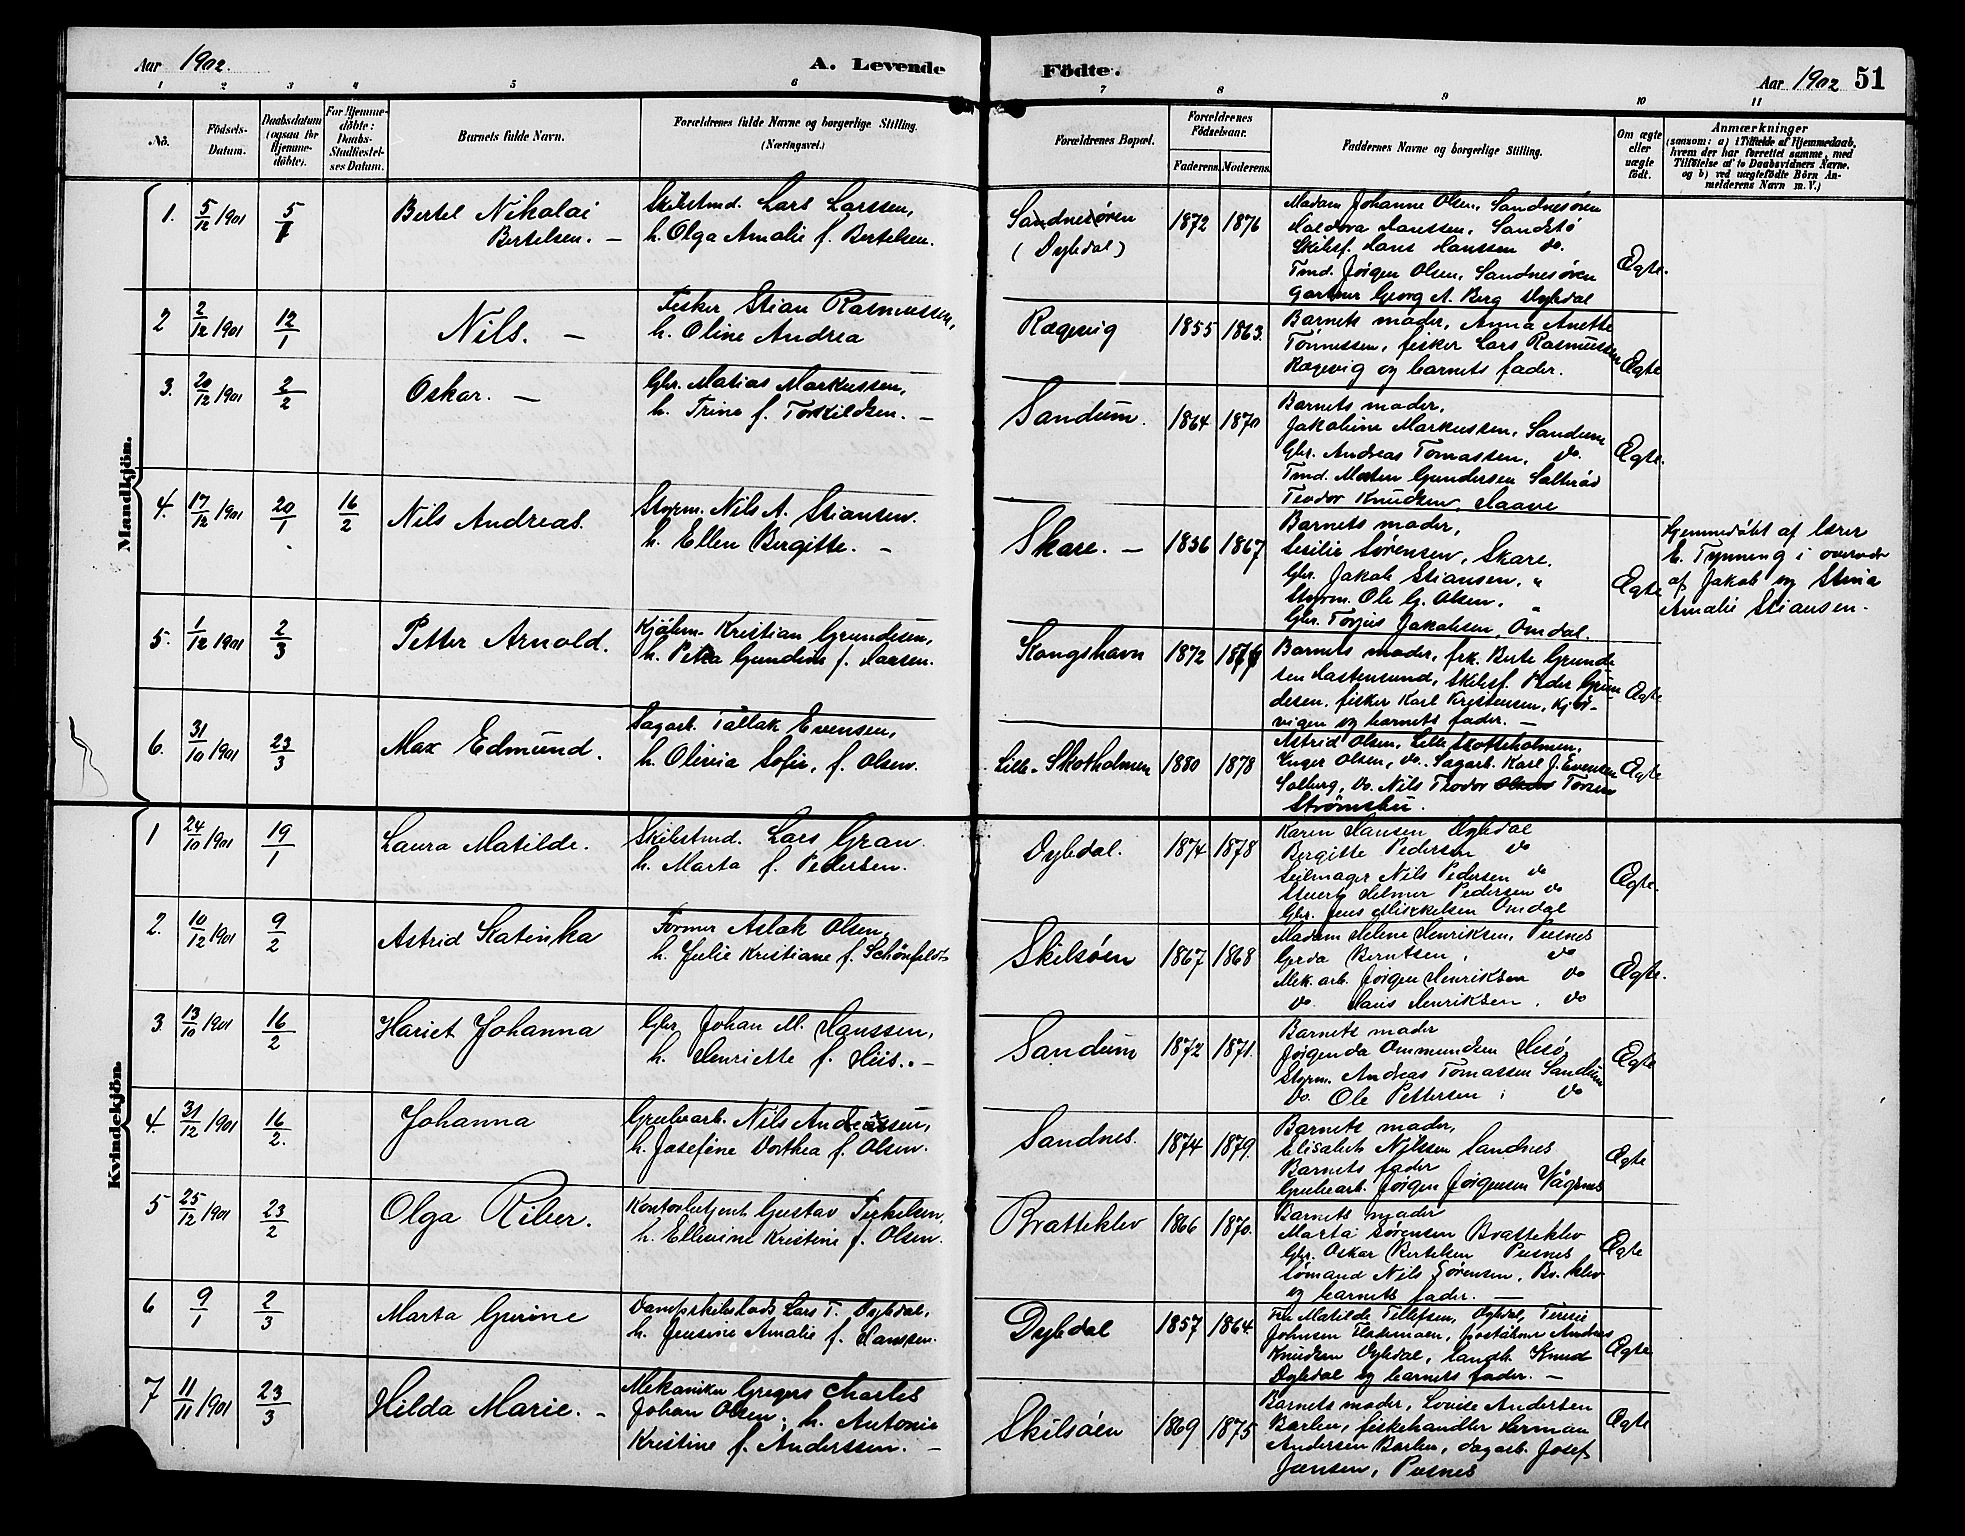 Aar 1902. A. Levende Födte. Aar 1902 51
1 2 3 4 5 6 7 8 9 10 11
No. Födsels-Datum. Daabsdatum (ogsaa for Hjemme-döbte). For Hjemme-döbte: Daabs-Stadfæstel-ses Datum. Barnets fulde Navn. Forældrenes fulde Navne og borgerlige Stilling. (Næringsvei.) Forældrenes Bopæl. Forældrenes Födselsaar. Faderens. Moderens. Faddernes Navne og borgerlige Stilling. Om ægte eller uægte födt. Anmærkninger
(saasom: a) i Tilfælde af Hjemmedaab,
hvem der har forrettet samme, med
Tilföielse af to Daabsvidners Navne.
og b) ved uægtefödte Börn An-
melderens Navn m. V.)
Mandkjön.
1. 5/12 1901 5/1 Bertel Nikolai
Bertelsen. —
Skibstmd. Lars Larssen,
h. Olga Amalie f. Bertelsen.
Sandnesøren
(Dybdal)
1872 1876
Madam Johanne Olsen, Sandnesøren
Hanssen, Sandstø
Skibsf. Hans Hanssen do.
Tmd. Jørgen Olsen, Sandnesøren
Gartner Georg A. Berg Dybdal
Ægte.
2 2/12 1901 12/1 Nils. —
Fisker Stian Rasmussen,
h. Oline Andrea
Rægevig
1855 1863.
Barnets moder, Anna Anette
Tønnessen, fisker Lars Rasmussen
Rægevig og barnets fader.
Ægte
3. 20/12 1901 2/2 Oskar. —
Gbr. Matias Markussen,
h. Trine f. Torkildsen. —
Sandum.
1864 1870
Barnets moder,
Jakobine Markussen, Sandum
Gbr. Andreas Tomassen, do.
Tmd. Morten Gundersen Salterød
Teodor Knudsen, Haave
Ægte.
4. 17/12 1901 20/1 16/2 Nils Andreas.
Styrm. Nils A. Stiansen.
h. Ellen Bergitte. —
Skare. —
1836 1867
Barnets moder,
Sesilie Sørensen, Skare.
Gbr. Jakob Stiansen, "
Styrm. Ole G. Olsen, "
Gbr. Torjus Jakobsen, Omdal.
Ægte
Hjemmedøbt af lærer
E. Tynning i overvær
af Jakob og Stina
Amalie Stiansen.
5. 1/12 1901 2/3 Petter Arnold.
Kjøbm. Kristian Grundesen,
h. Petra Gundine f. Hansen.
Kongshavn
1872 1877
Barnets moder, frk. Berte Grunde
sen Hastensund, Skibsf. Peder Grun
desen. fisker Karl Kristensen, Kjør-
vigen og barnets fader. —
Ægte
6. 31/10 1901 23/3 Max Edmund.
Sagarb. Tallak Evensen,
h. Olivia Sofie, f. Olsen.
Lille-Skotholmen
1880 1878
Astrid Olsen, Lille Skotteholmen,
Inger Olsen, do. Sagarb. Karl J. Evensen
Solberg, Do. Nils Teodor Olsen
Strømsbu.
Ægte
Kvindekjön.
1 24/10 1901 19/1 Laura Matilde.
Skibstmd. Lars Gran.
h. Marta f. Pedersen.
Dybdal.
1874 1878
Karen Hansen Dybdal
Bergitte Pedersen do
Seilmager Nils Pedersen do
Stuert Helmer Pedersen do
Gbr. Jens Mikkelsen Omdal
Ægte.
2. 10/12 1901 9/2 Astrid Katinka
Former Aslak Olsen,
h. Julie Kristiane f. Schönfeldt
Skilsøen
1867 1868
Madam Helene Henriksen, Pusnes
Gerda Berntsen, do
Mek. arb. Jørgen Henriksen do
do. Hans Henriksen, do
Ægte.
3. 13/10 1901 16/2 Hariet Johanna
Gbr. Johan M. Hanssen,
h. Henriette f. Hiis. —
Sandum
1872 1871.
Barnets moder
Jørgenda Ommundsen Hisø,
Styrm. Andreas Tomassen Sandum
Do. Ole Pettersen, do
Ægte
4. 31/12 1901 16/2. Johanna
Grubearb. Nils Andreassen,
h. Josefine Dorthea f. Olsen.
Sandnes.
1874 1879.
Barnets moder,
Elisabet Nilssen Sandnes
Barnets fader
Grubearb. Jørgen Jørgensen Vågsnes
Ægte
5 25/12 1901 23/2 Olga Riber.
Kontorbetjent Gustav Terkelsen,
h. Ellevine Kristine f. Olsen.
Bratteklev
1866 1870.
Barnets moder
Marta Sørensen Bratteklev
Gbr. Oskar Bertelsen Pusnes
Sømand Nils Sørensen, Br. klev
og barnets fader. —
Ægte
6 9/1 2/3 Marta Gurine
Dampskibslods Lars T. Dybdal,
h. Jensine Amalie f. Hanssen.
Dybdal
1857 1864.
Fru Matilde Tellefsen, Dybdal, Teresie
Johnsen poståbner Andreas
Knudsen Dybdal, landh. Knud
Dybdal og barnets fader. —
Ægte
7 11/11 1901 23/3 Hilda Marie. —
Mekaniker Gregers Charles
Johan Olsen, h. Antonie
Kristine f. Anderssen. —
Skilsøen
1869 1875
Barnets moder, Lovise Andersen
Barlen, fiskehandler Herman
Andersen Barlen, dagarb. Josef
Jansen, Pusnes
Ægte